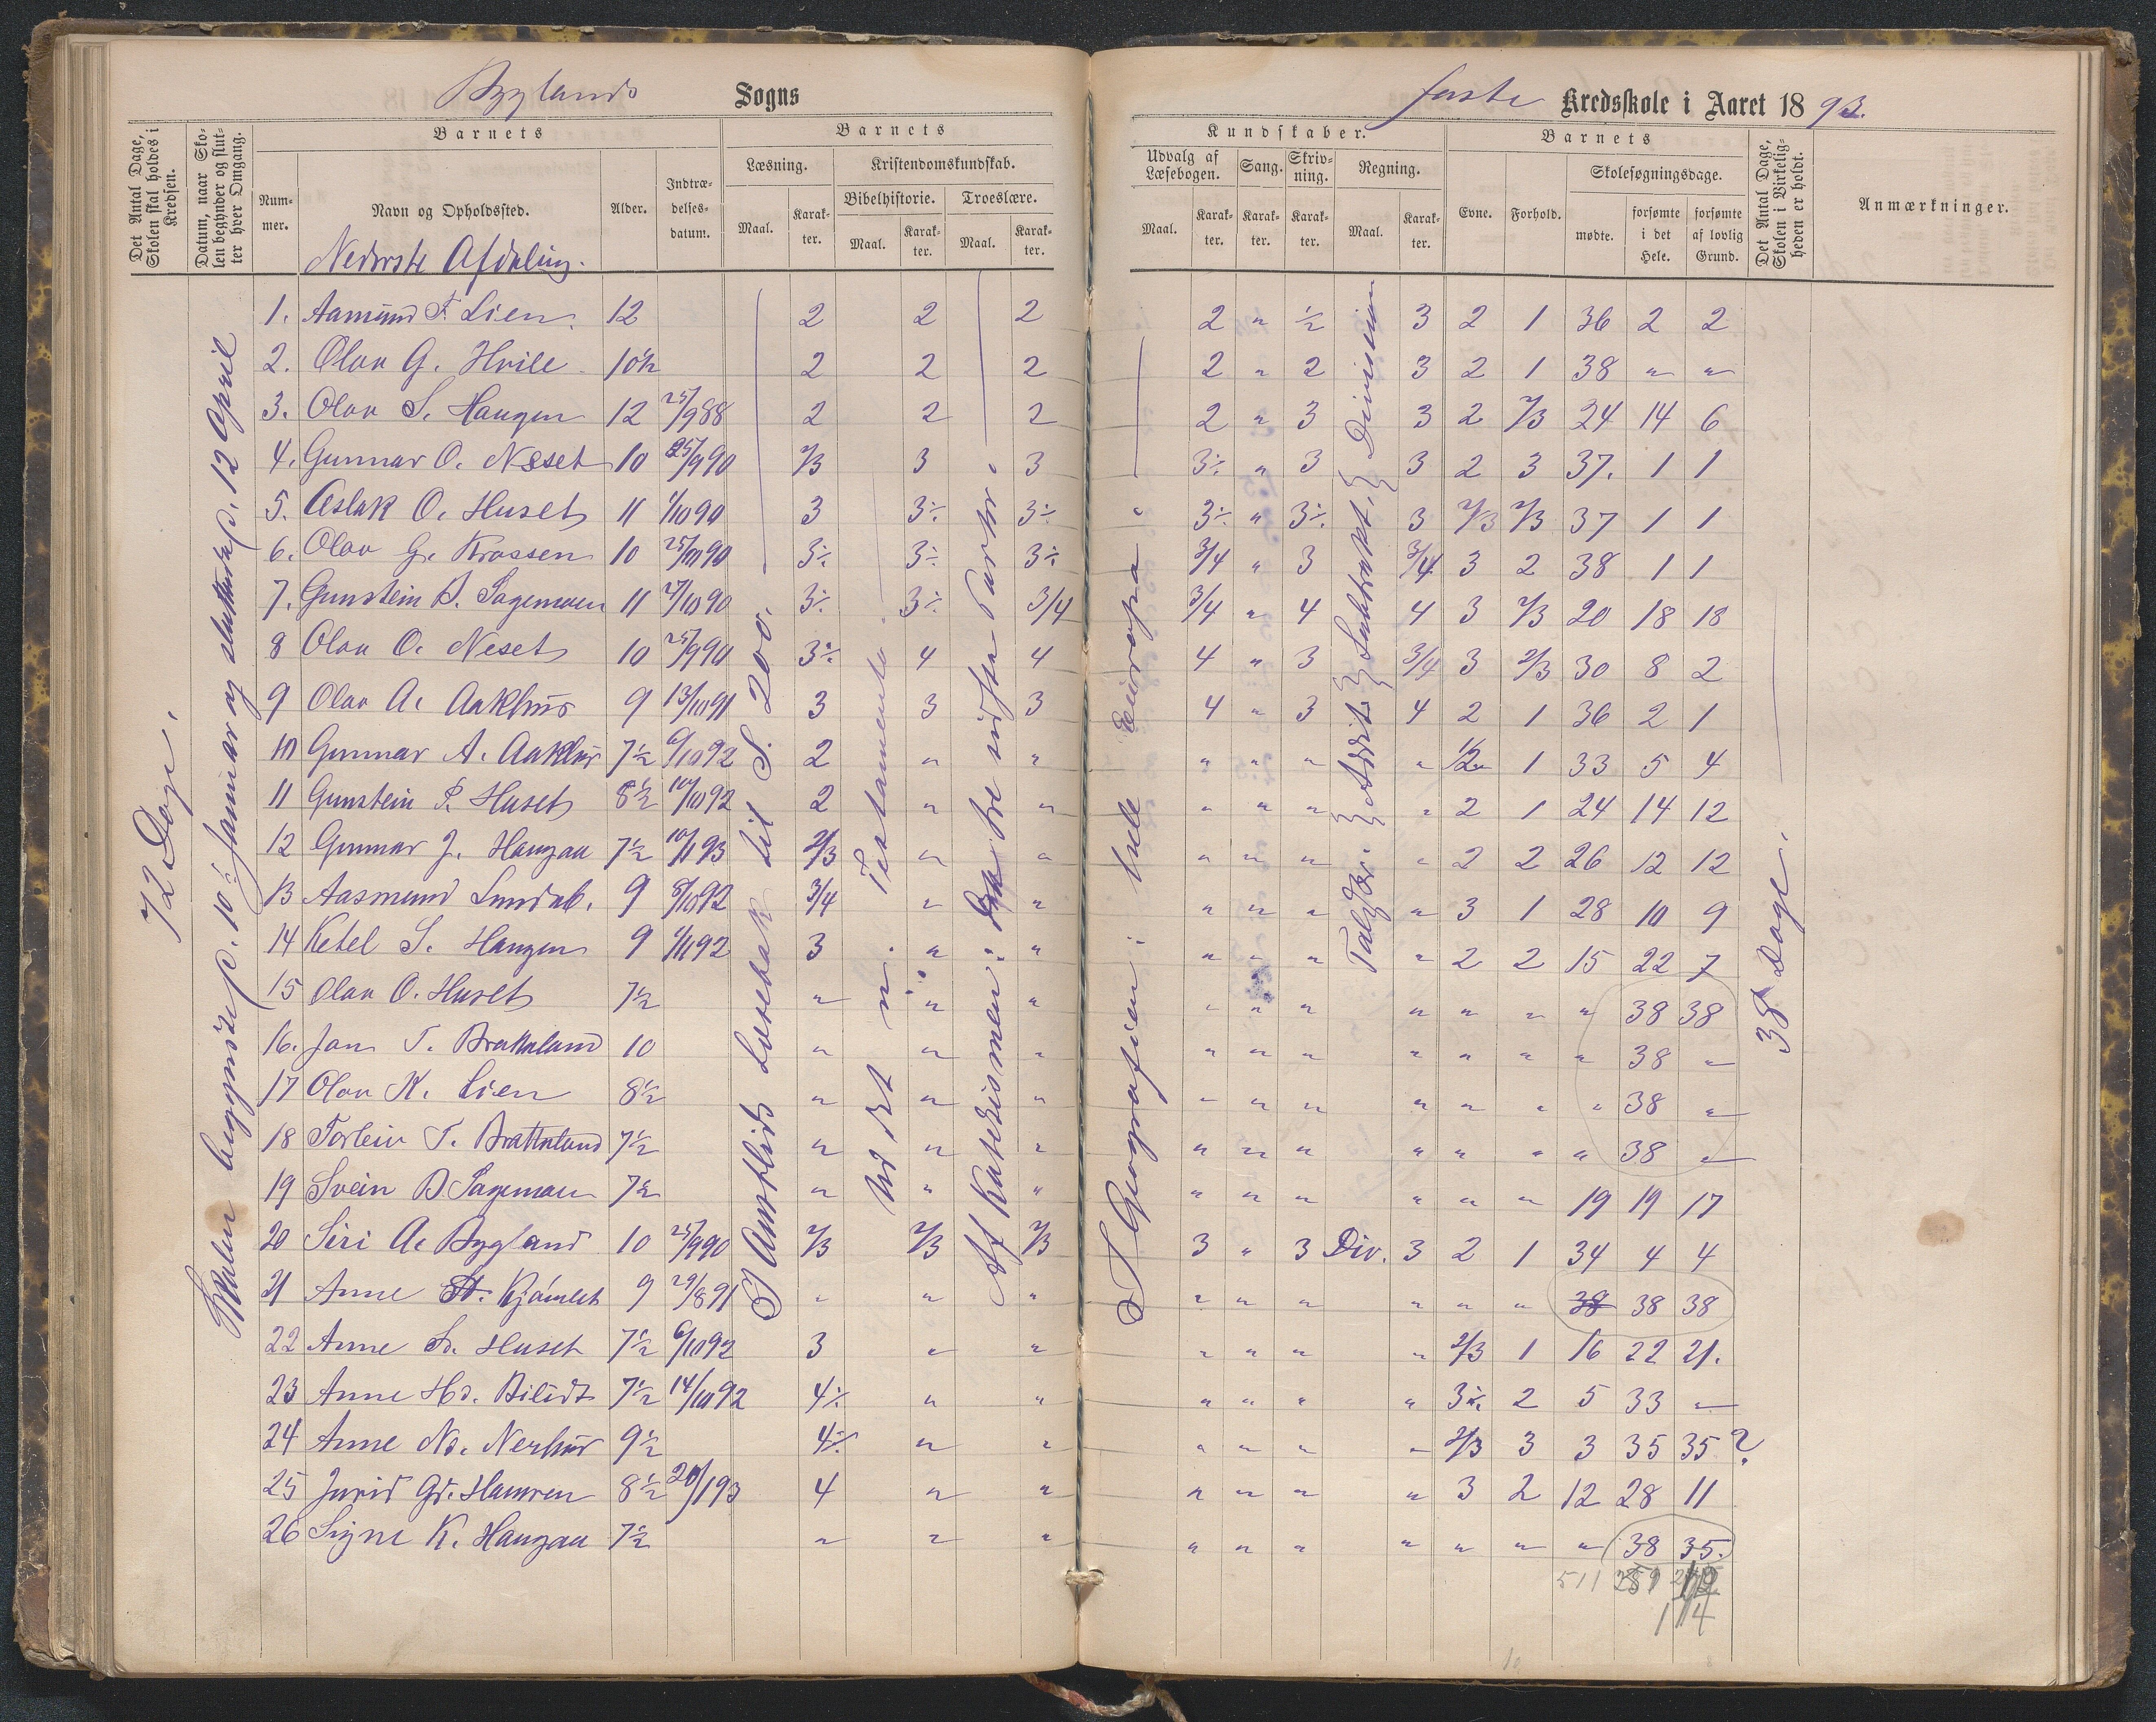 Byglands Sogns
faste Kredsskole i Aaret 1893.
Det Antal Dage, Skolen skal holdes i Kredsen.
Datum, naar Skolen begynder og slutter hver Omgang.
Barnets
Nummer.
Navn og Opholdssted.
Alder.
Indtrædelsesdatum.
Barnets
Læsning.
Kristendomskundskab.
Bibelhistorie.
Troeslære.
Maal.
Karakter.
Maal.
Karakter.
Maal.
Karakter.
Kundskaber.
Udvalg af Læsebogen.
Sang.
Skrivning.
Regning.
Maal.
Karakter.
Karakter.
Karakter.
Maal.
Karakter.
Barnets
Evne.
Forhold.
Skolesøgningsdage.
mødte.
forsømte i det Hele.
forsømte af lovlig Grund.
Det Antal Dage, Skolen i Virkeligheden er holdt.
Anmærkninger.
Nederste Afdeling.
72 Dage.
Skolen begyndte p. 10de Januar og sluttede p. 12 April
I Austlids Læsebok til S. 200.
Ud det n. Testamente.
Af Katekismen: De tre sidste Parter.
I Geografien: hele Europa
Taløv. Addit. Subtrakt. Division
38 Dage.
1. Aamund T. Lien. 12 2 2 2 2 " 1/2 3 2 1 36 2 2
2. Olav G. Hvile 10½ 2 2 2 2 " 2 3 2 1 38 " "
3. Olav S. Haugen 12 25/9 88 2 2 2 2 " 3 3 2 2/3 24 14 6
4. Gunnar O. Neset 10 25/9 90 2/3 3 3 3÷ " 3 3 2 3 37. 1 1
5. Aslak O. Huset 11 1/10 90 3 3÷ 3÷ 3÷ " 3÷ 3 2/3 2/3 37 1 1
6. Olav G. Krossen 10 3÷ 3÷ 3÷ 3/4 " 3 3/4 3 2 38 1 1
7. Gunstein B. Sagemoen 11 3÷ 3÷ 3/4 3/4 " 4 4 3 2/3 20 18 18
8 Olav O. Neset 10 25/9 90 3÷ 4 4 4 " 3 3/4 3 2/3 30 8 2
9 Olav A. Aakhus 9 13/10 91 3 3 3 4 " 3 4 2 1 36 2 1
10 Gunnar A. Aakhus 7½ 6/10 92 2 " " " " " " 1/2 1 33 5 4
11 Gunstein P. Huset 8½ 10/10 92 2 " " " " " " 2 1 24 14 12
12 Gunnar J. Haugaa 7½ 10/1 93 2/3 " " " " " " 2 2 26 12 12
13 Aasmund Lundeb. 9 8/10 92 3/4 " " " " " " 3 1 28 10 9
14 Ketel S. Haugen 9 1/11 92 3 " " " " " " 2 2 15 22 7
15 Olav O. Huset 7½ " " " " " " " " " " 38 38
16. Jon T. Brattaland 10 " " " " " " " " " " 38 "
17 Olav K. Lien 8½ " " " " " " " " " " 38 "
18 Torleiv T. Brattaland 7½ " " " " " " " " " " 38 "
19 Svein B. Sagemoen 7½ " " " " " " " " " 19 19 17
20 Siri A. Bygland 10 25/9 90 2/3 2/3 2/3 3 " 3 Div. 3 2 1 34 4 4
21 Anne Kjómlet 9 29/8 91 " " " " " " " " " 38 38 38
22 Anne Huset 7½ 6/10 92 3 " " " " " " 2/3 1 16 22 21.
23 Anne Hd. 7½ 14/10 92 4÷ " " " " " " 3÷ 2 5 33 "
24 Anne Nd. Nerhus 9½ 4÷ " " " " " " 2/3 3 3 35 35 ?
25 Jurid Gd. Hamren 8½ 20/1 93 4 " " " " " " 3 2 12 28 11
26 Signe K. Haugaa 7½ " " " " " " " " " " 38 35.
511 259
114